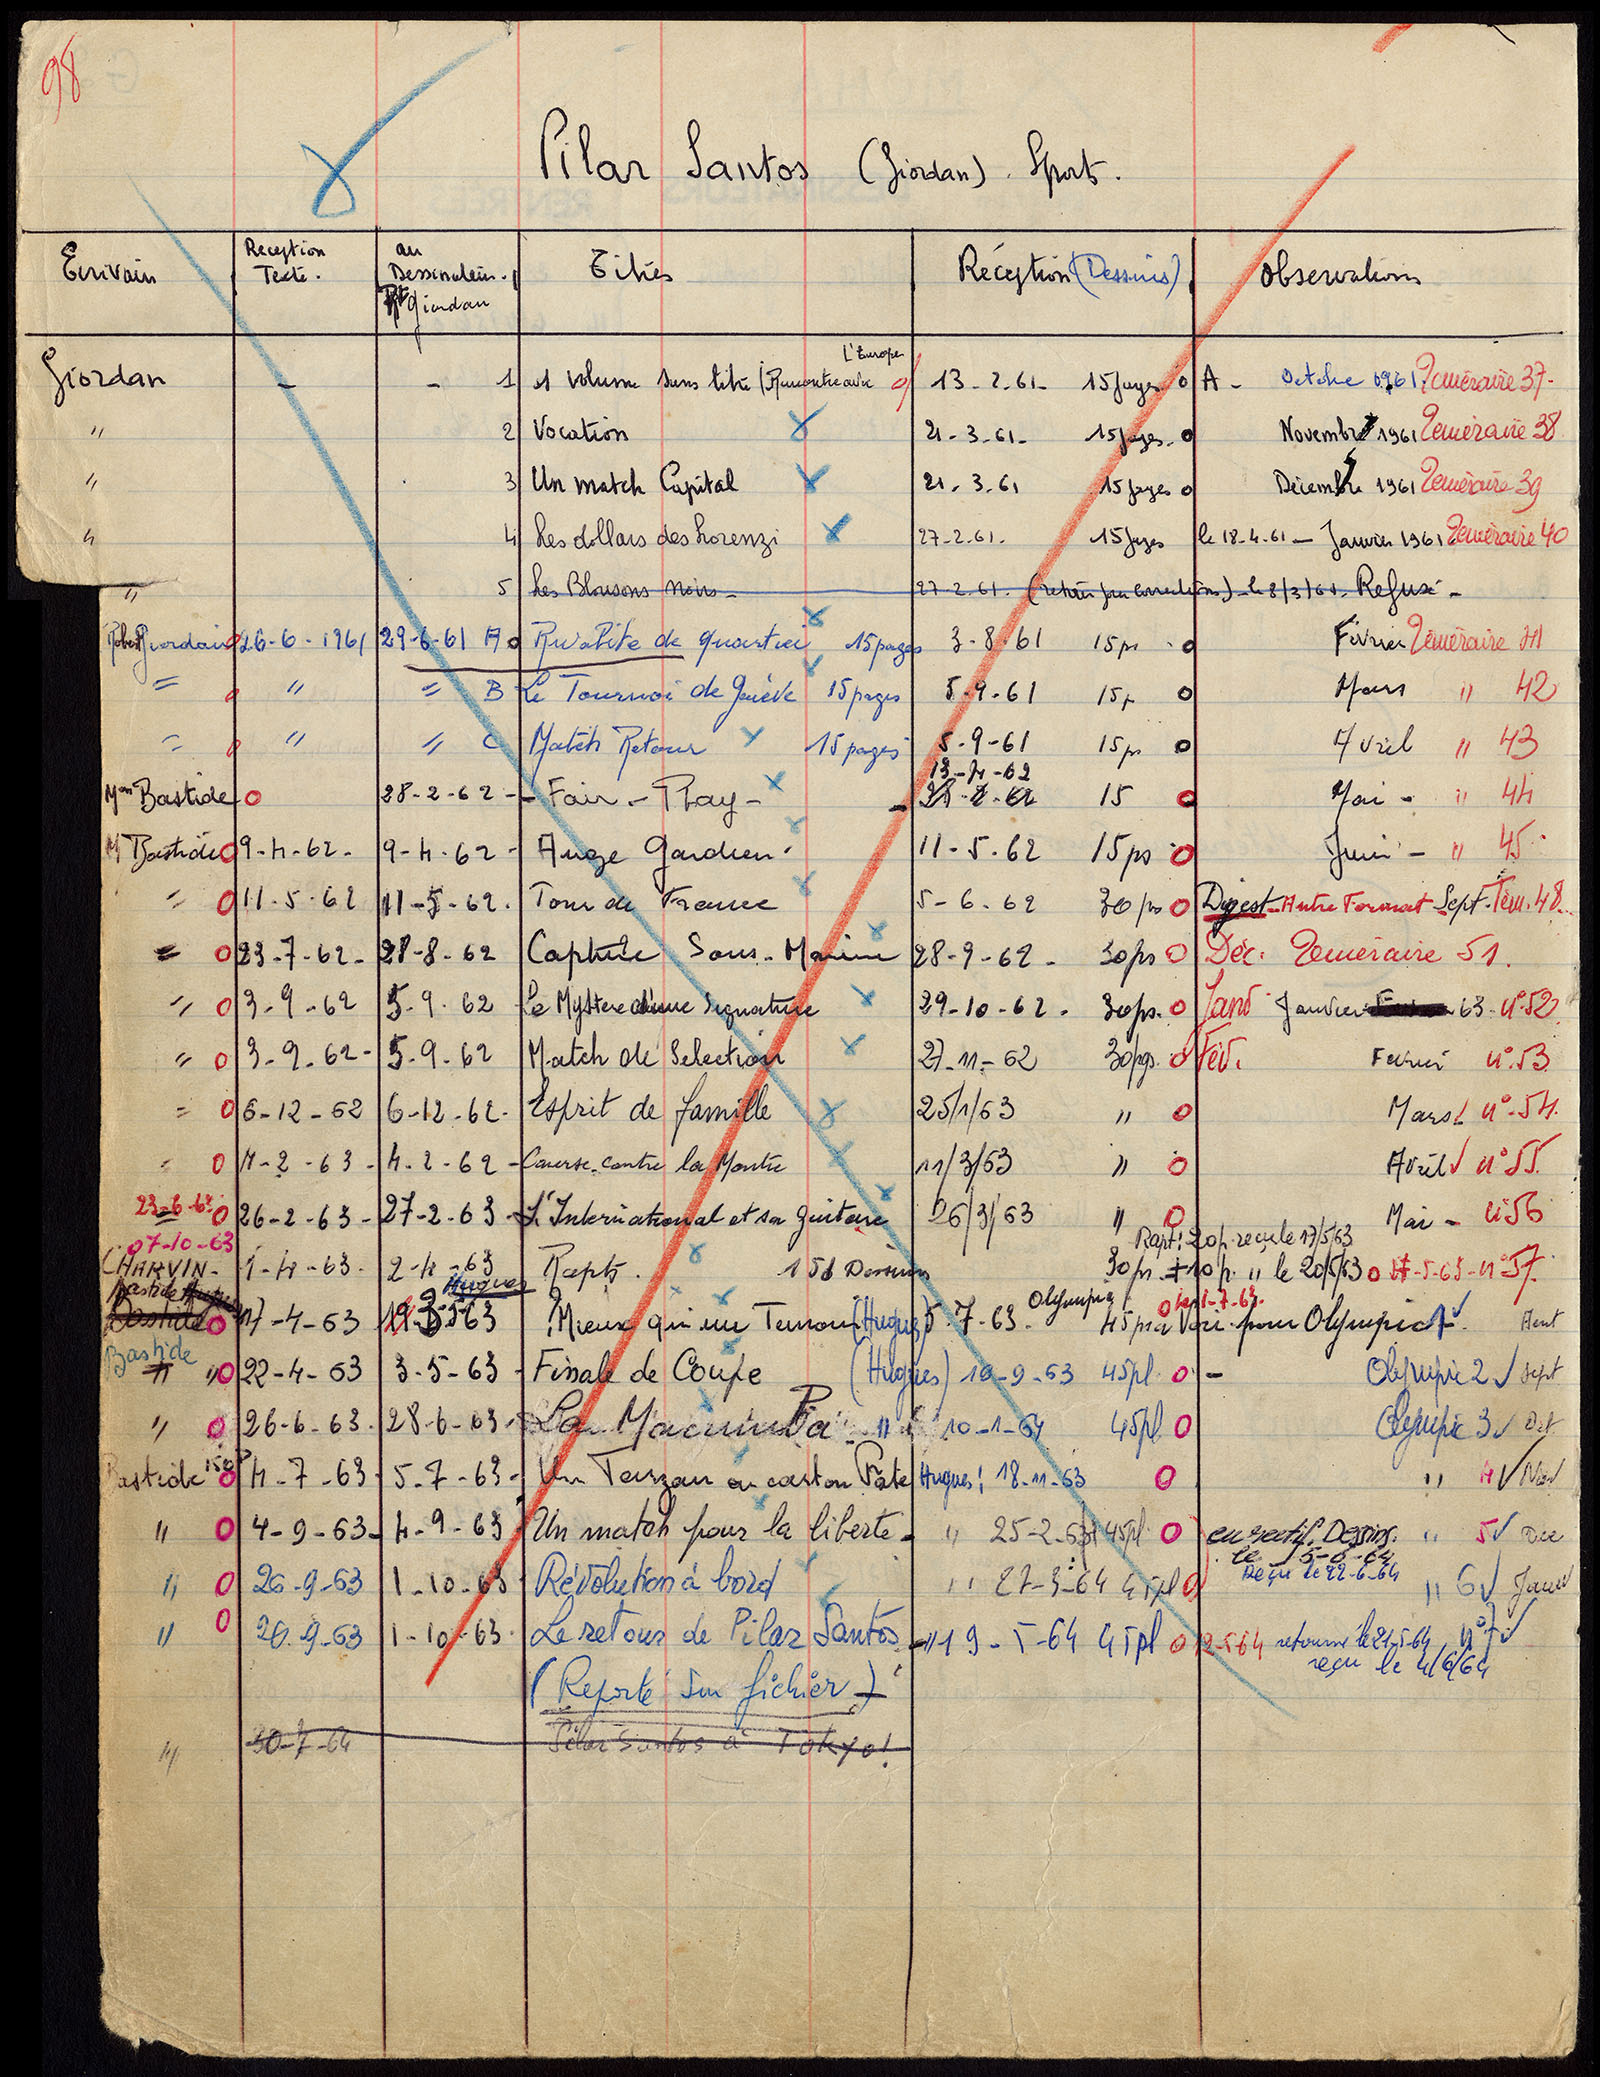 98
Pilar Santos (Giordan). Sports.
Ecrivain Réception Texte. au Dessinateur. Rt Giordan Titres Réception (Dessins) Observations
L'Europe
Giordan - - 1 1 volume sans titre (Rencontre avec 13-2-61- 15 pages o A - Octobre 1961 Téméraire 37-
" 2 Vocation 21-3-61- 15 pages. o Novembre 1961 Téméraire 38
" 3 Un match Capital 21.3.61 15 pages o Décembre 1961 Téméraire 39
" 4 Les dollars des Lorenzi 27-2.61. 15 pages le 18-4-61 - Janvier 1961 Téméraire 40
" 5 Les Blousons Noirs - 27-2-61. (retour pour corrections) - le 8/3/61. Refusé -
Robert Giordan o 26-6-1961 29-6-61 A o Rivalité de quartier 15 pages 3-8-61 15 ps o Février Téméraire 41
= o " = B Le Tournoi de Genève 15 pages 5-9-61 15 p o Mars " 42
= o " " C Match Retour 15 pages 5-9-61 15 ps o Avril " 43
13-4-62
Mm Bastide o 28-2-62 - Fair-Play - 15 o Mai - " 44
M Bastide o 9-4-62- 9-4-62- Ange Gardien 11-5-62 15 ps o Juin - " 45
" o 11.5.62 11-5-62. Tour de France 5-6-62 30 ps o Digest - Autre Format - Sept. Tém. 48
" o 23-7-62- 28-8-62 Capture Sous-Marine 28-9-62- 30 ps o Déc. Téméraire 51.
" o 3-9-62 5-9-62 Le Mystere d'une Signature 29-10-62. 30 ps. o Janv Janvier 63- n°52
" o 3-9-62- 5-9-62 Match de Selection 27-11-62 30 pgs. o Fév. Fevrier n°53
= o 6-12-62 6-12-62- Esprit de famille 25/1/63 " o Mars n°-54.
" o 4-2-63- 4-2-62- Course contre la Montre 11/3/63 " o Avril n°55.
23-6-63 o 26-2-63- 27-2-63- L'International et sa guitare 26/3/63 " o Mai - n°56
07-10-63 Rapt! 20 p. reçu le 17/5/63
CHARVIN- 1-4-63. 2-4-63 Rapts. 1 56 Dessins 30 ps. + 10 p. " le 20/5/63 o -5-63-n°57.
Bastide Hugues Hugues Olympic
Bastide o 17-4-63 Mieux qu'une Terreur (Hugues) 5-7-63. 45 p a voir pour Olympic 1. Aout
Bastide
" o 22-4-63 3-5-63- Finale de Coupe (Hugues) 10-9-63 45 pl. o - Olympic 2 Sept
" o 26-6-63. 28-6-63. La Macumba " 10-1-64 45 pl o Olympic 3 Oct
Bastide o 4-7-63 5-7-63- Un Tarzan en carton Pâte Hugues! 18-11-63 o " 4 Nov
" o 4-9-63- 4-9-63 Un match pour la liberté - " 25-2-63 45 pl. o en rectif. Dessins. " 5 Dec
le 5-6-64
Reçu le 22-6-64
" o 26-9-63 1-10-63 Révolution à bord " 27-3-64 45 pl o " 6 Janv
" o 26-9-63 1-10-63. Le retour de Pilar Santos - " 19-5-64 45 pl o 12-5-64 retourné le 21-5-64 n°7
reçu le 4/6/64
(Reporté sur fichier -)
" 30-7-64 Pilar Santos à Tokyo!